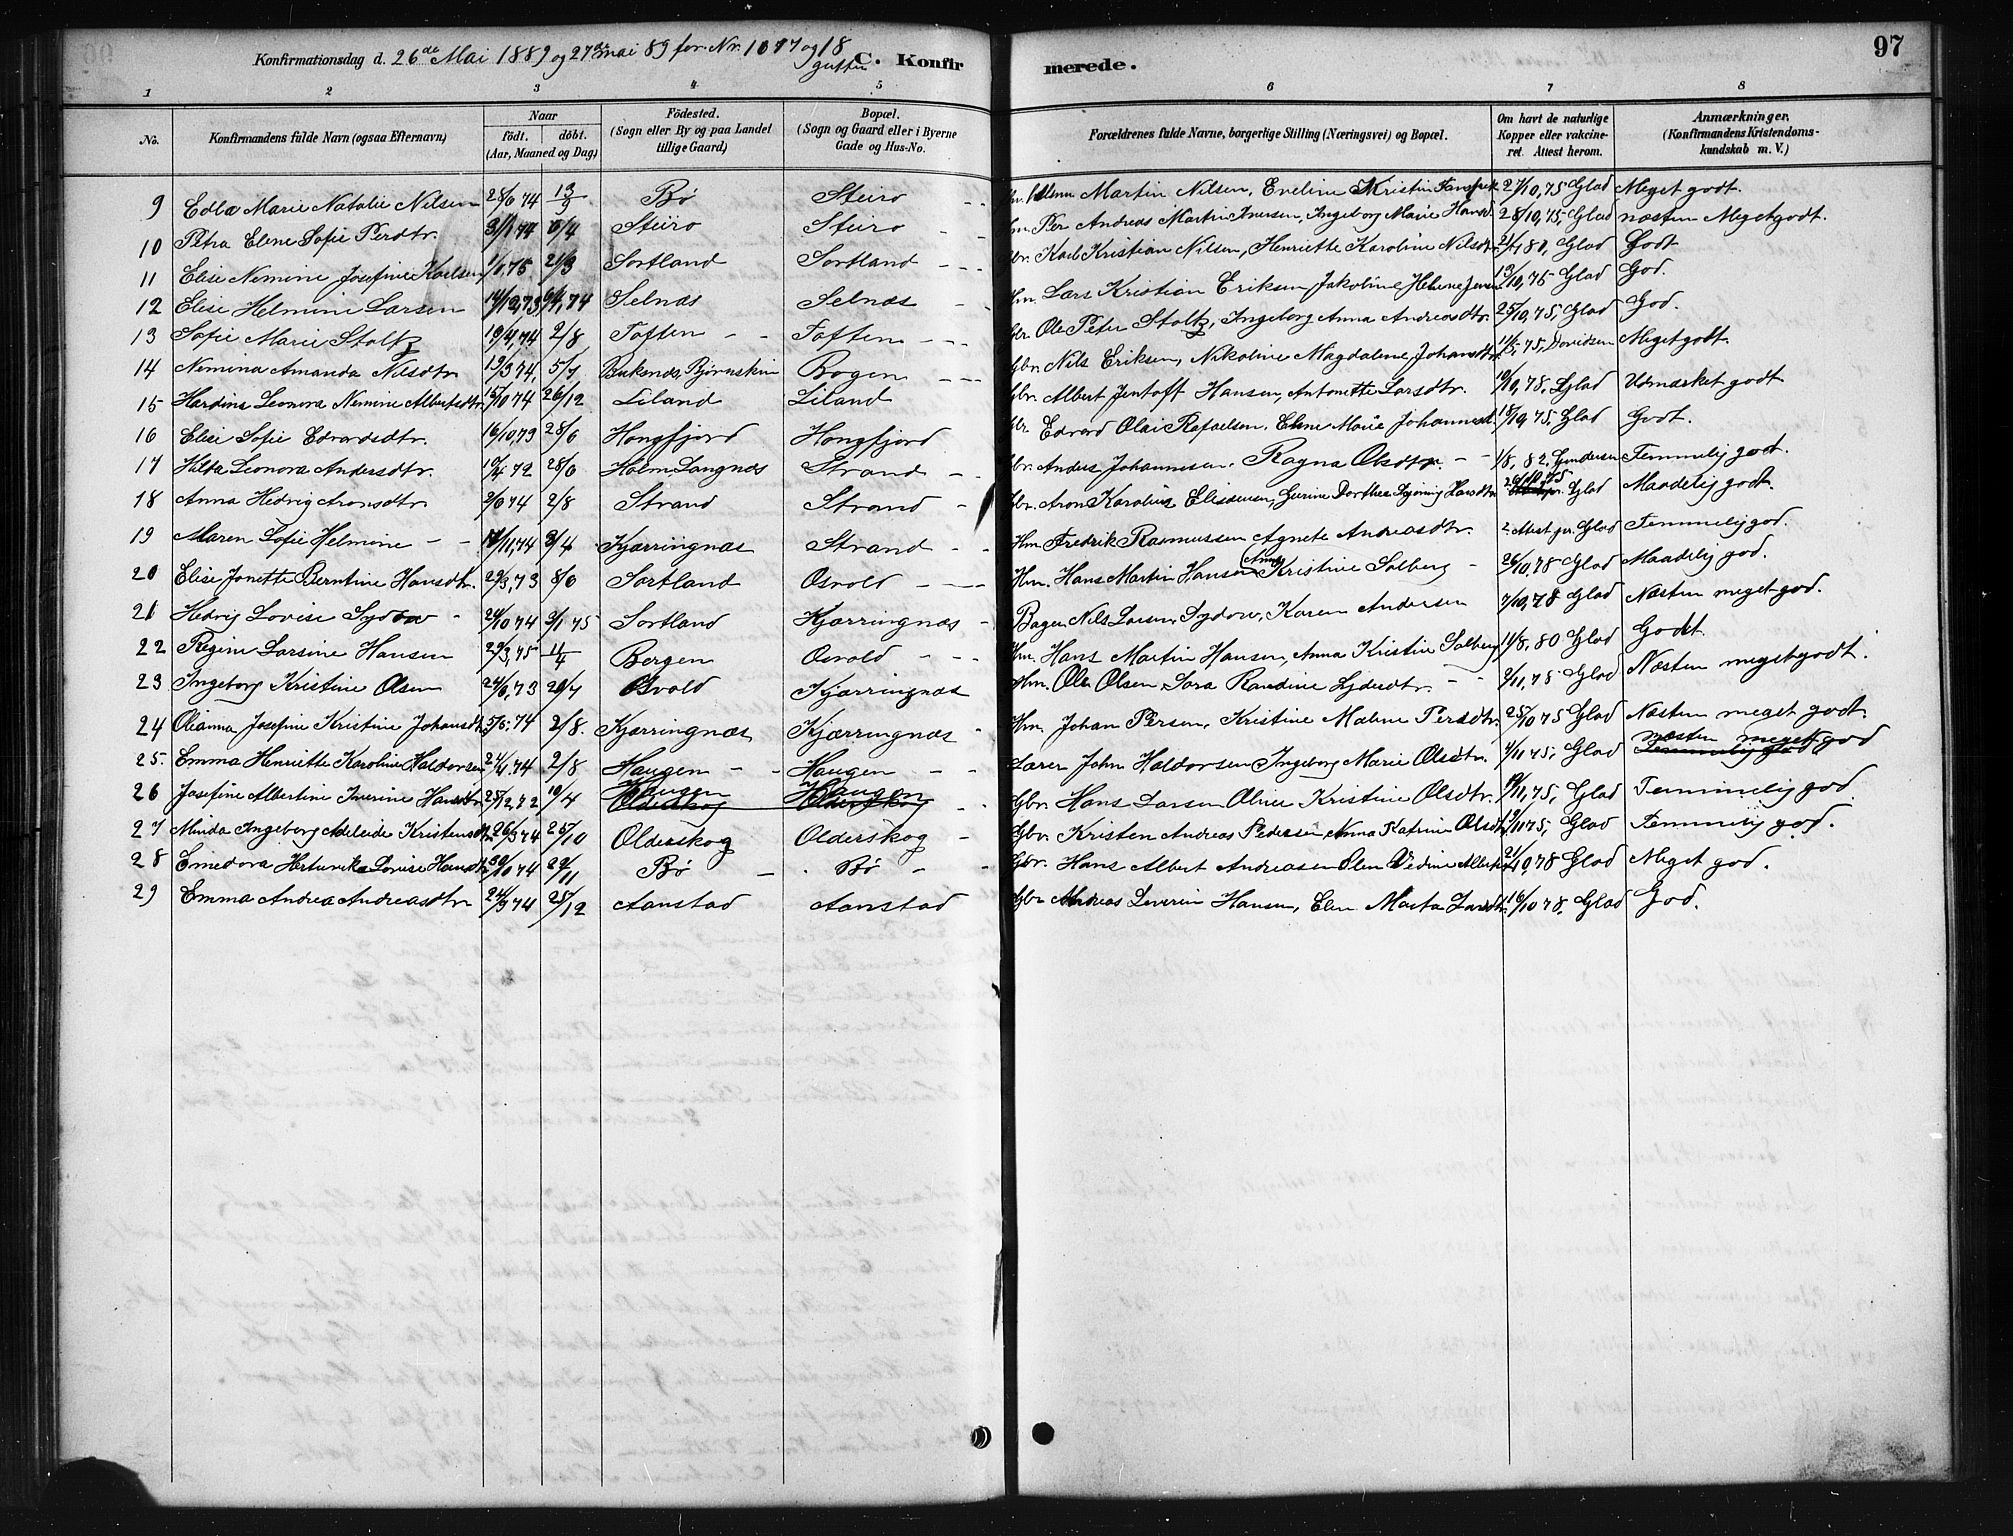 Konfirmationsdag d. 26de Mai 1889 og 27de mai 89 for Nr. 1077 og 18
gutter
C. Konfirmerede.
97
1 2 3 4 5 6 7 8
No.
Konfirmandens fulde Navn (ogsaa Efternavn)
Naar
födt. döbt.
(Aar, Maaned og Dag)
Födested.
(Sogn eller By og paa Landet
tillige Gaard)
Bopæl.
(Sogn og Gaard eller i Byerne
Gade og Hus-No.
Forældrenes fulde Navne, borgerlige Stilling (Næringsvei) og Bopæl.
Om havt de naturlige
Kopper eller vakcine-
ret. Attest herom.
Anmærkninger.
(Konfirmandens Kristendoms-
kundskab m. V.)
9 Edla Marie Natalie Nilsen 28/6 74 13/9 Bø Steiro Martin Nilsen, Eveline Kristin 27/10,75 Glad Meget godt.
10 Petra Elene Sofie Persdtr. 31/1 74 6/4 Steiro Steiro Hm Per Andreas Martin Iversen, Ingeborg Marie Hansd. 28/10,75 Glad næsten Meget godt.
11 Elise Nemine Josefine Karlsen 1/1,75 21/3 Sortland Sortland Gbr. Karl Kristian Nilsen, Henriette Karoline Nilsdtr 21/7 81, Glad Godt
12 Elise Helmine Larsen 14/12,73 9/4,74 Selnæs Selnæs Hm. Lars Kristian Eriksen Jakoline Helene Jensen 13/10,75 Glad God.
13 Sofie Marie Stoltz 19/4,74 2/8 Toften Toften Gbr. Ole Peter Stoltz, Ingeborg Anna Andreasdtr. 25/10,75, Glad God.
14 Nemina Amanda Nilsdtr 13/3 74, 5/7 Bukenæs, Bjørnskin Bogen Gbr. Nils Eriksen, Nikoline Magdalene Johansdtr 11/5,75, Davidsen Meget godt.
15 Hardine Leonora Nemine Albertsdtr 15/10 74 26/12 Liland Liland Gbr. Albert Jentoft Hansen, Antonette Larsdtr. 10/10,78. Glad Udmærket godt
16 Elise Sofie Edvardsdtr. 16/10,73 28/6 Hongfjord Hongfjord Gbr. Edvard Olai Rafaelsen. Elene Marie Johannesd. 18/10,75, Glad Godt.
17 Hilda Leonora Andersdtr. 10/4 72 28/6 Holm Langnæs Strand Gbr. Anders Johannesen. Ragna Olsdtr. 1/8, 82. Gundersen Temmelig godt.
18 Anna Hedvig Aronsdtr 2/6 74 2/8 Strand Strand Gbr. Aron Karolius Elisæusen, Gurine Dorthea Hansdtr Glad Maadelig godt.
19 Maren Sofie Helmine 17/11,74 3/4 Kjærringnæs Strand Hm Fredrik Rasmussen Agnete Andreasdtr. Attest pr. Glad Temmelig god.
20 Elise Jonette Berntine Hansdtr. 29/3,73 8/6 Sortland Osvold Hm. Hans Martin Hansen Anna Kristine Solberg 26/10,78 Glad Maadelig god.
21 Hedvig Lovise Sydow 24/10 74 3/1 75 Sortland Kjærringnæs Bager Nils Larsen Sydow, Karen Andersen 7/10,78 Glad Næsten meget god.
22 Regine Larsine Hansen 29/3,75 11/4 Bergen Osvold Hm. Hans Martin Hansen, Anna Kristine Solberg 11/8, 80 Glad Godt.
23 Ingeborg Kristine Olsen 24/6,73 20/7 Osvold Kjærringnæs Hm. Ole Olsen Sara Randine Lydersdtr. 2/11,78 Glad Næsten meget godt.
24 Olianna Josefine Kristine Johansdtr 5/6,74 2/8. Kjærringnæs Kjærringnæs Hm. Johan Persen, Kristine Malene Persdtr. 25/10 75 Glad Næsten meget godt.
25. Emma Henriette Karoline Haldorsen 24/4,74 2/8 Haugen Haugen Lærer John Haldorsen Ingeborg Marie Olsdtr. 4/11 75, Glad næsten meget god
26 Josefine Albertine Iverine Hansdtr 28/12,72 10/4 Haugen Haugen Gbr. Hans Larsen Oline Kristine Olsdtr. 19/11,75, Glad Temmelig god.
27 Minda Ingeborg Adeleide Kristensdtr 26/3 74 25/10 Olderskog Olderskog Gbr. Kristen Andreas Pedersen, Anna Katrine Olsdtr 11/11 75, Glad Temmelig god.
28 Emedora Hertinrika Lovise Hansdtr 30/10 74 29/11 Bø Bø Gbr. Hans Albert Andreasen Elen Vedine Albertsd 21/10,78 Glad Meget god.
29 Emma Andrea Andreasdtr 24/9 74 25/12 Aanstad Aanstad Gbr Andreas Severin Hansen, Elen Marta Larsdtr. 16/10 78, Glad God.